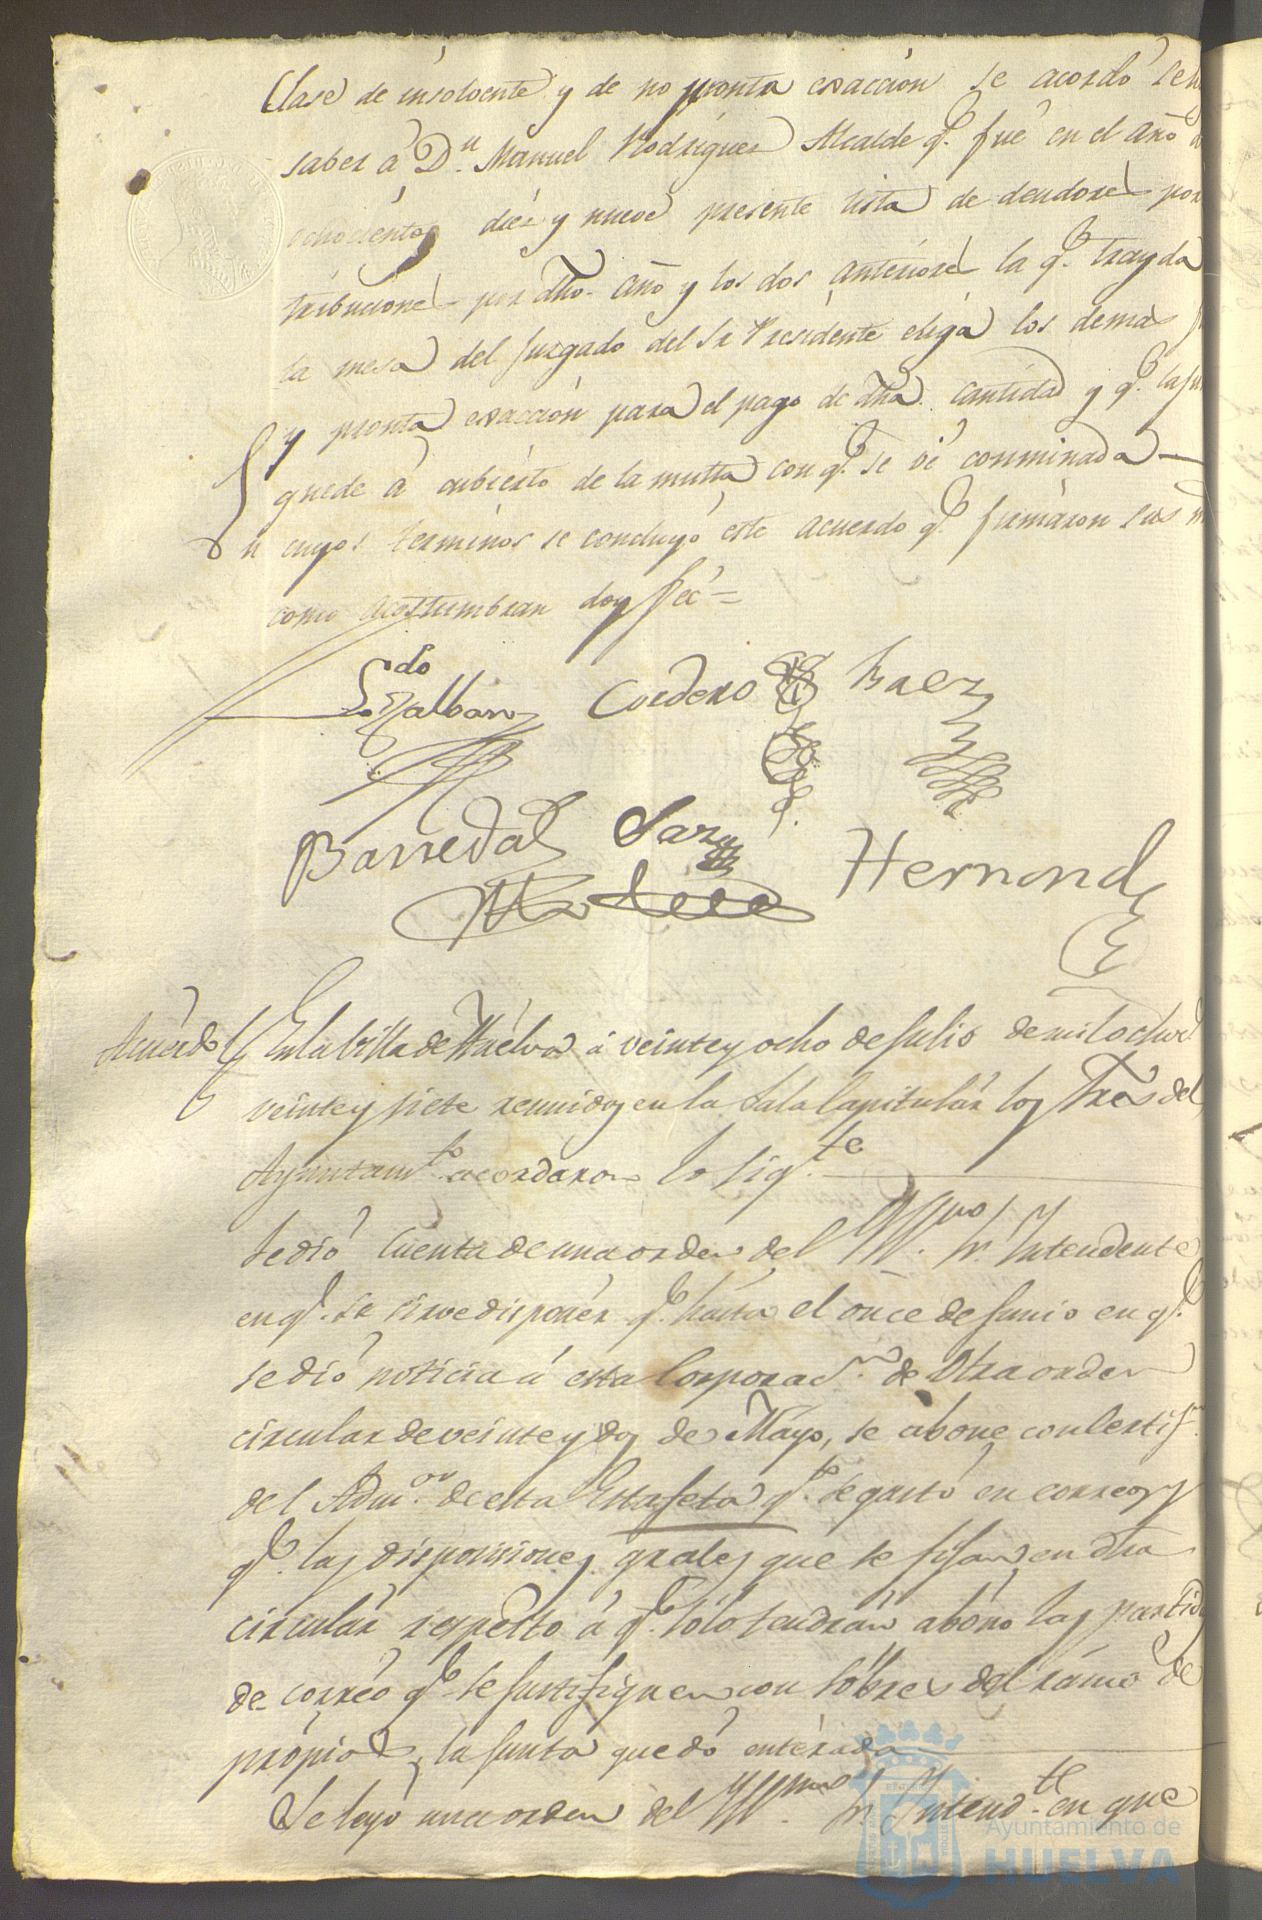 Clase de insolvente y de no pronta exacción se acordó
saber á Dn. Manuel Rodriguez Alcalde q.e fué en el año
ochocientos diez y nueve presente lista de deudores por
tribuciones por dho. año y los dos anteriores la q.e trayda
la mesa del Juzgado del Sr Presidente eliga los demas
y pronta exacción para el pago de dha. cantidad y q.e
quede á cubierto de la multa con q.e se vé conminada
En cuyos terminos se concluyó este acuerdo q.e firmaron sus
como acostumbran doy feé =
Ldo Galban Cordero Baez
Barreda Sanz Hernand
Acuerdo En la Villa de Huelva á veinte y ocho de Julio de mil ochos
veinte y siete reunidos en la Sala Capitulár los Sres del
Ayuntam.to acordaron lo sig.te
Se dió Cuenta de una orden del Yllmo. Sr. Yntendente
en q.e se sirve disponér q.e hasta el once de Junio en q.e
se dió noticia á esta Corporac.n de Otra orden
circular de veinte y dos de Mayo, se abone con certif.n
del Adm.or de esta Estafeta q.to se gastó en correos y
q.e las disposiciones grales que se fijan en dha
circulár respecto á q.e solo tendrán abóno las partid
de corréo q.e se justifiquen con sóbres del rámo de
própios, la Junta quedó enteráda
Se leyó una orden del Yllmo. Sr. Yntend.te en que
Ayuntamiento de
HUELVA